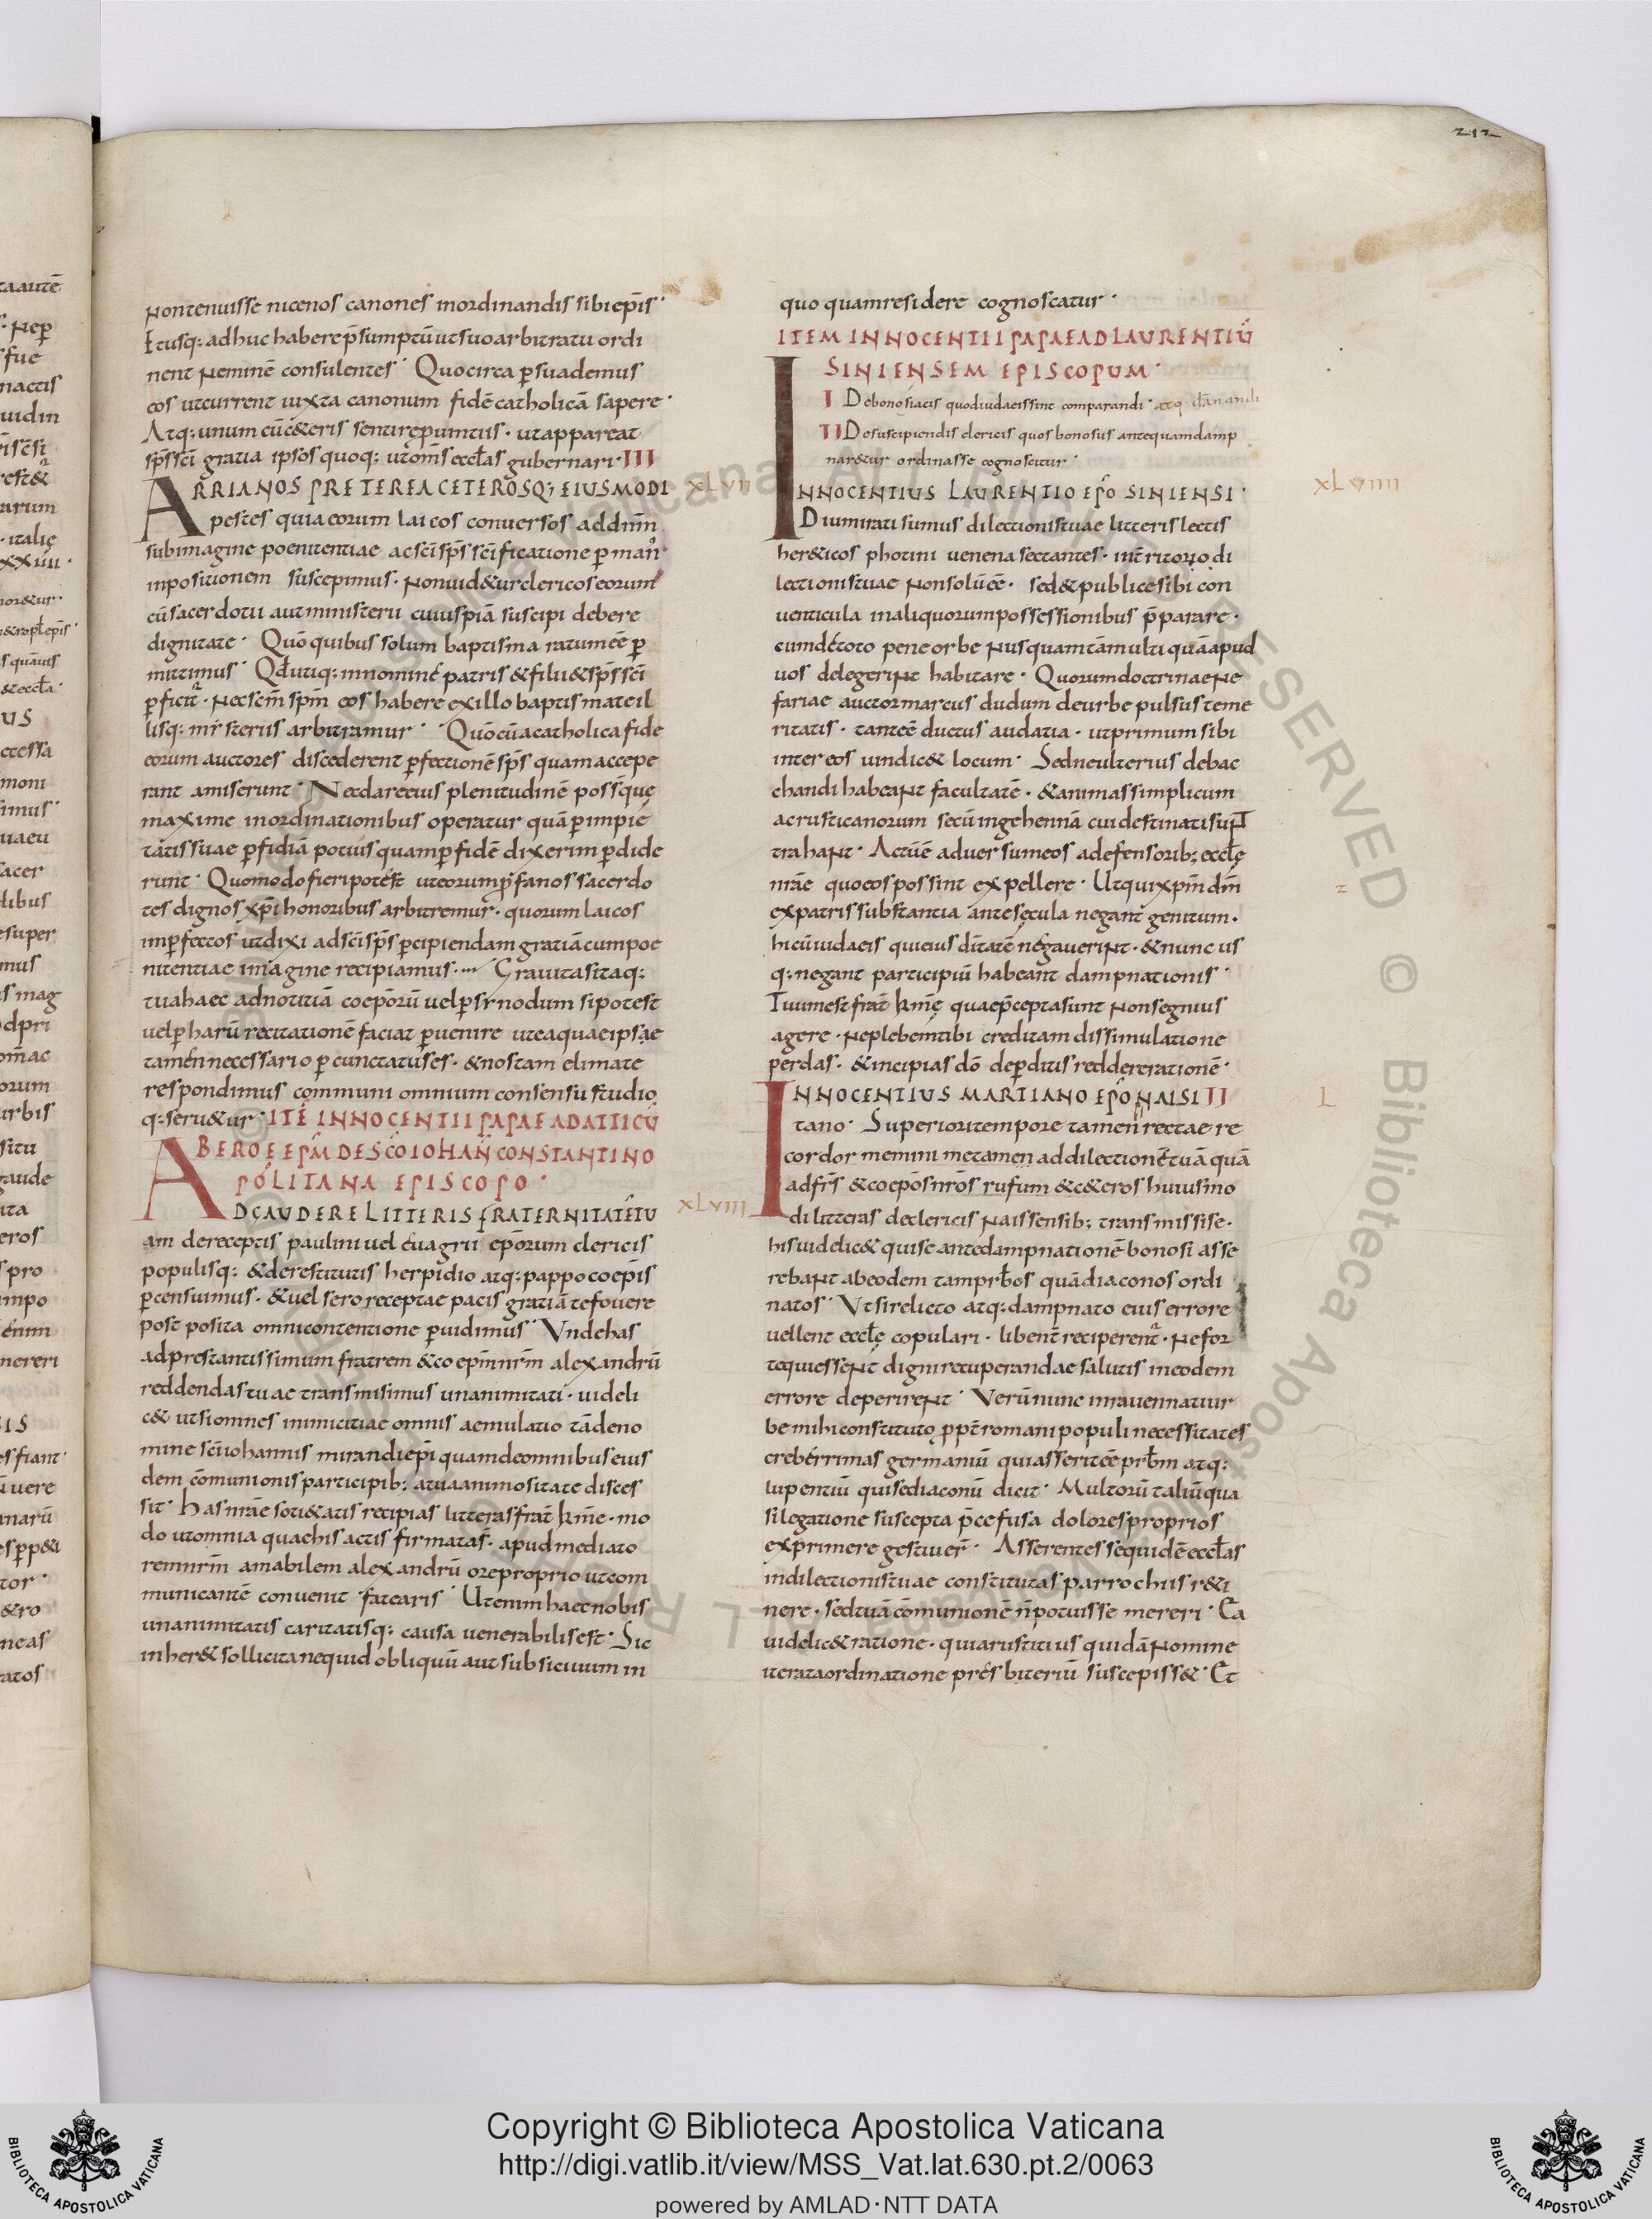 212
Non tenuisse nicenos canones in ordinandis sibi ep̄is·
Et usq: adhuc habere p̄sumptū ut suo arbitratu ordi
nent Neminē consulentes· Quocirca p̱suademus
eos ut current iuxta canonum fidē catholicā sapere·
Atq: unum cū c&eris sentire p̱uintiis· ut appareat
sp̄s sc̄i gratia ipsos quoq: ut om̄s eccl̄as gubernari· III
ARRIANOS PRETEREA CETEROSQ; EIUSMODI XLVII
pestes quia eorum laicos conuersos ad dn̄m
sub imagine poenitentiae ac sc̄i sp̄s sc̄ificatione p̱ man̄
inpositionem suscepimus· Non uid&ur clericos eorum
cū sacerdotii aut ministerii cuiuspiā suscipi debere
dignitate· Quō quibus solum baptisma ratum eē p̱
mittimus· Qd̄ utiq: in nomine patris & filii & sp̄s sc̄i
p̱ficit̄· Nec sc̄m sp̄m eos habere ex illo baptismate il
lisq: mysteriis arbitramur· Quō cū a catholica fide
eorum auctores discederent p̱fectionē sp̄s quam accepe
rant amiserunt· Nec dare eius plenitudinē poss̄ que
maxime in ordinationibus operatur quā p̱ impie
tatis suae p̱fidiā potius quam p̱ fidē dixerim p̱dide
runt· Quomodo fieri potest ut eorum p̱fanos sacerdo
tes dignos xp̄i honoribus arbitremur· quorum laicos
imp̱fectos ut dixi ad sc̄i sp̄s p̱cipiendam gratiā cum poe
nitentiae imagine recipiamus· Grauitas itaq:
tua haec ad notitiā coep̄orū uel p̱ synodum si potest
uel p̱ harū recitationē faciat p̱uenire ut ea quae ipsae
tamen necessario p̱cunctatus es· & nos tam elimate
respondimus communi omnium consensu studio
q: seru&ur· ITĒ INNOCENTII PAPAE AD ATTICŪ
A BEROE EP̄M DE SC̄O IOHAN̄ CONSTANTINO
POLITANA EPISCOPO·
DGAUDERE LITTERIS FRATERNITATĒ TU XLVIII
am de receptis paulini uel euagrii ep̄orum clericis
populisq: & de restitutis herpidio atq: pappo coep̄is
p̱censuimus· & uel sero receptae pacis gratiā te fouere
post posita omni contentione p̱uidimus· Unde has
ad prestantissimum fratrem & coep̄m nr̄m alexandrū
reddendas tuae transmisimus unanimitati· uideli
c& ut si omnes inimicitiae omnis aemulatio tā de no
mine sc̄i iohannis mirandi ep̄i quam de omnibus eius
dem cōmunionis participib; a tua animositate disces
sit· has nr̄ae soci&atis recipias litteras frat̄ km̄e· mo
do ut omnia quae his actis firmatas· apud mediato
rem nr̄m amabilem alexandrū ore proprio ut com
municantē conuenit fatearis· Ut enim haec nobis
unanimitatis caritatisq: causa uenerabilis est· Sic
inher& sollicita ne quid obliquū aut subsiciuum in
quoquam residere cognoscatur·
ITEM INNOCENTII PAPAE AD LAURENTIŪ
SINIENSEM EPISCOPUM·
I De bonosiacis quod iudaei ssint comparandi· atq· dānandi
II De suscipiendis clericis quos bonosus antequam damp
nar&ur ordinasse cognoscitur·
INNOCENTIUS LAURENTIO EPŌ SINIENSI· XLVIIII
Diu mirati sumus dilectionis tuae litteris lectis
her&icos photini uenena sectantes· int̄ritorio di
lectionis tuae Non solū eē· sed & publice sibi con
uenticula in aliquorum possessionibus p̄parare·
cum de toto pene orbe Nusquam tā multi quā apud
uos delegeriNt habitare· Quorum doctrinae Ne
fariae auctor marcus dudum de urbe pulsus teme
ritatis· tantē ductus audatia· ut primum sibi
inter eos uindic& locum· Sed ne ulterius debac
chandi habeaNt facultatē· & animas simplicum
ac rusticanorum secū in gehennā cui destinati suNT
trahaNt· Actūē aduersum eos a defensorib; eccl̄ę
nr̄ae quo eos possint expellere· Ut qui xp̄m dm̄
ex patris substantia ante sęcula negant genitum·
hi cū iudaeis qui eius diītatē negaueriNt· & nunc us
q: negant participiū habeant dampnationis·
Tuum est frat̄ km̄ę quae p̄cepta sunt Non segnius
agere· Ne plebem tibi creditam dissimulatione
perdas· & incipias dō dep̱ditus reddere rationē·
INNOCENTIUS MARTIANO EPŌ NAISI II L
tano· Superiori tempore tamen rectae re
cordor memini me tamen ad dilectionē tuā quā
ad frs̄ & coep̄os nr̄os rufum & c&eros huiusmo
di litteras de clericis Naissensib; transmissise·
his uidelic& qui se ante dampnationē bonosi asse
rebaNt ab eodem tam prb̄os quā diaconos ordi
natos· Ut si relicto atq: dampnato eius errore
uellent eccl̄ę copulari· libent̄ reciperent̄· Ne for
te qui esseNt digni recuperandae salutis in eodem
errore deperireNt· Verū nunc in rauennat ur
be mihi constituto p̱pt̄ romani populi necessitates
creberrimas germaniū qui asserit eē prb̄m atq:
lupentiū qui se diaconū dicit· Multorū taliū qua
si legatione suscepta p̄ce fusa dolores proprios
exprimere gestiuer̄· Asserentes equidē eccl̄as
in dilectionis tuae constitutas parrochiis r&i
nere· sed tuā cōmunionē n̄ potuisse mereri· Ea
uidelic& ratione· quia rusticius quidā Nomine
iterata ordinatione presbiteriū suscepiss&· Et
Copyright © Biblioteca Apostolica Vaticana
http://digi.vatlib.it/view/MSS_Vat.lat.630.pt.2/0063
powered by AMLAD·NTT DATA